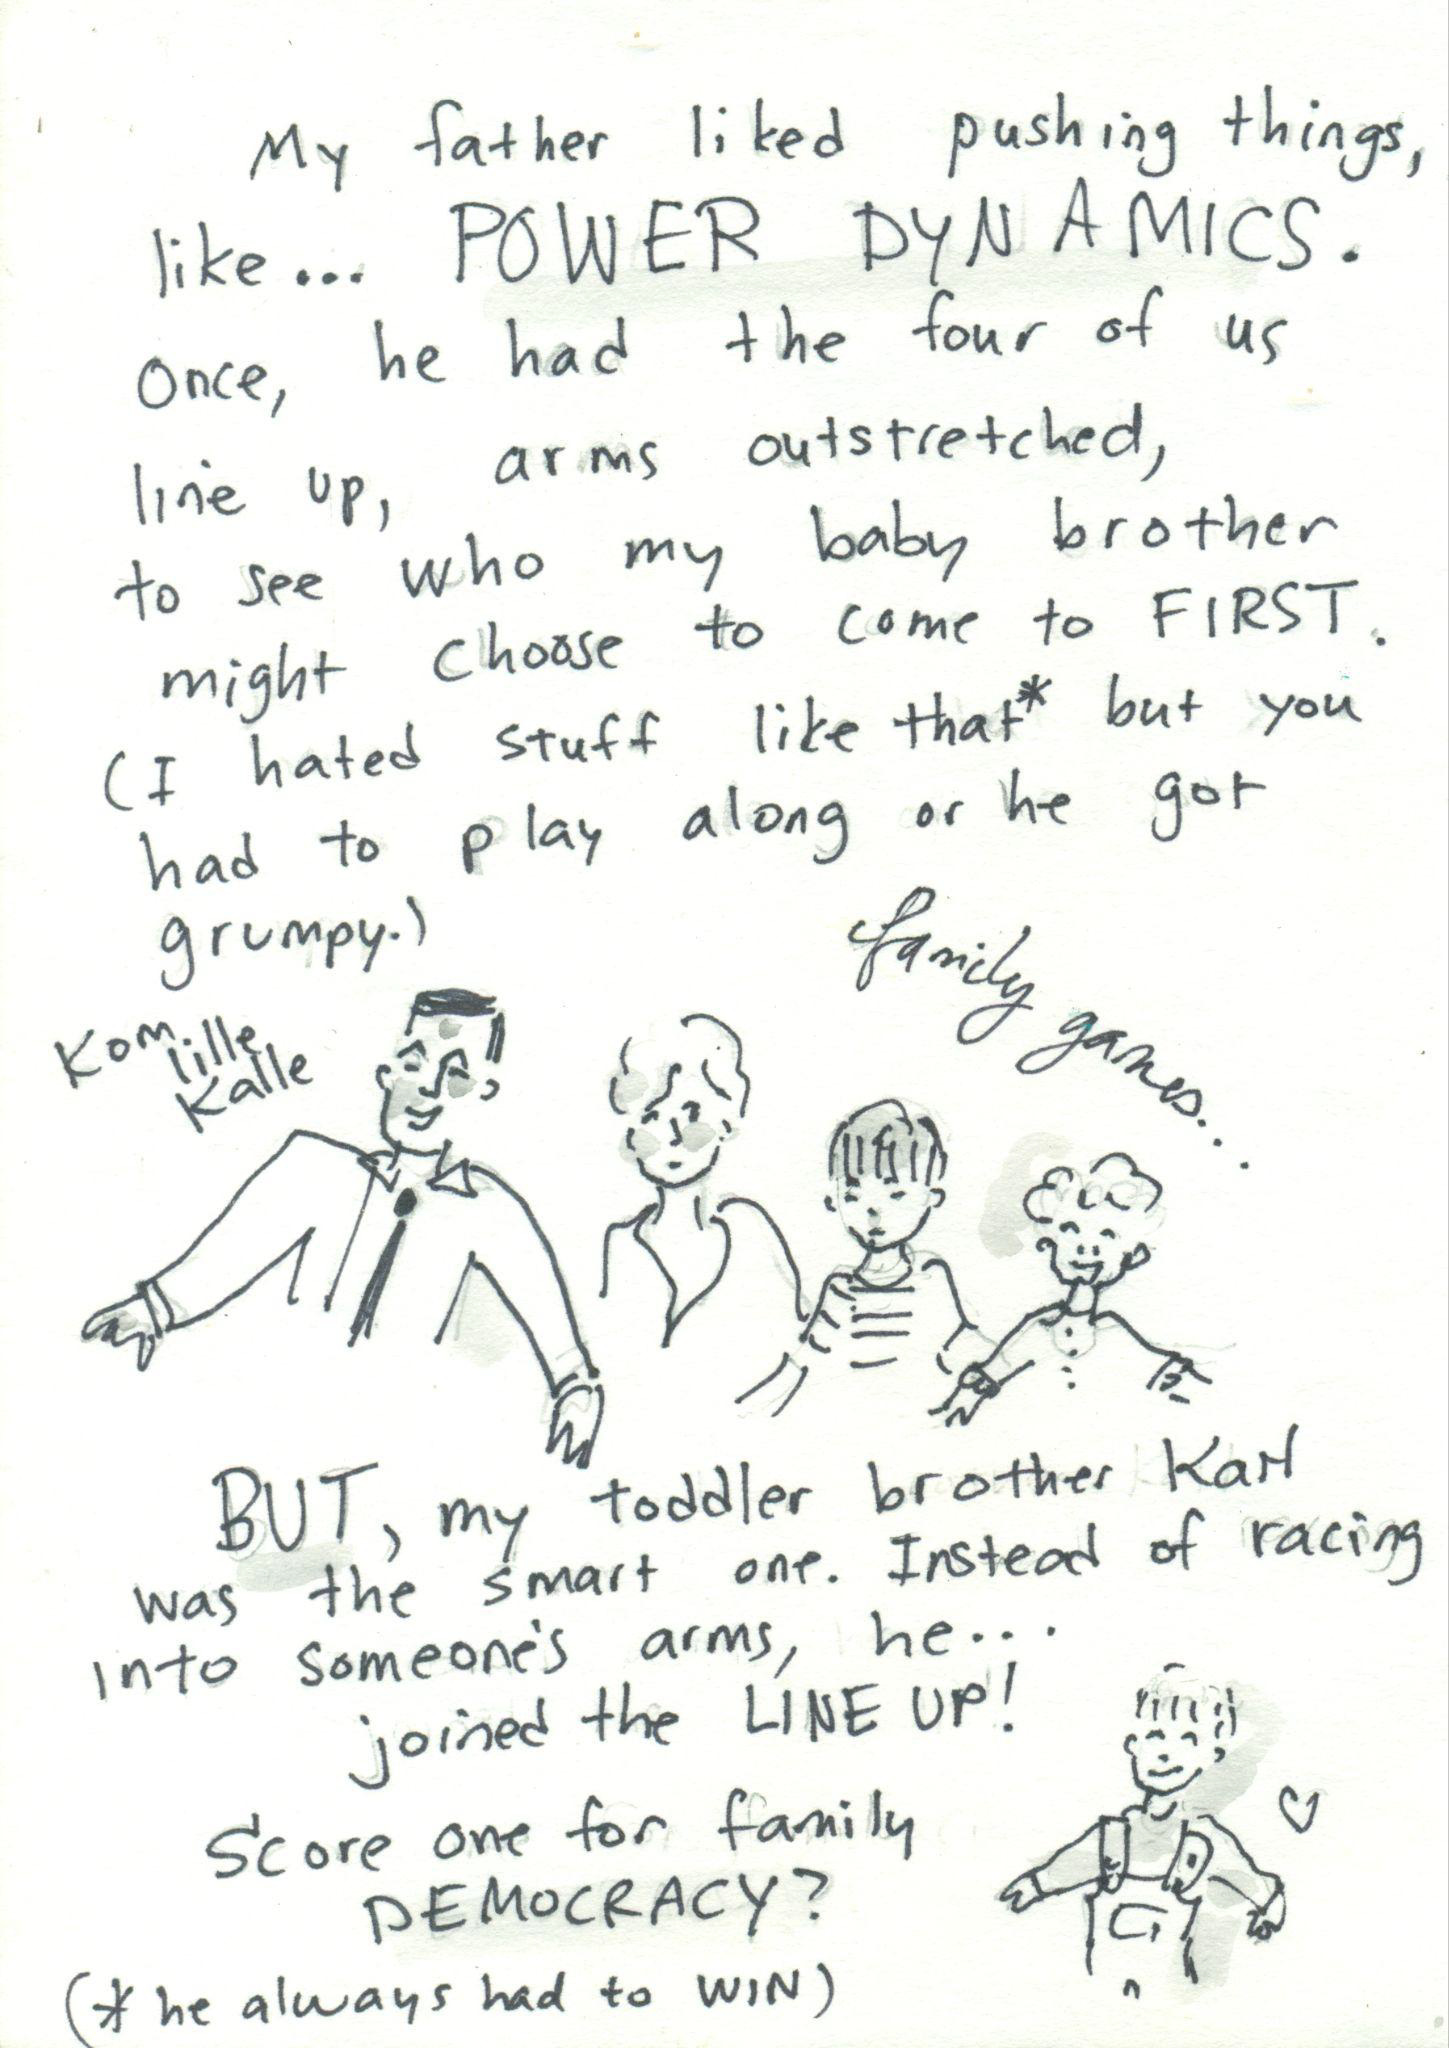 My father liked pushing things,
like... POWER DYNAMICS.
Once, he had the four of us
line up, arms outstretched,
to see who my baby brother
might choose to come to FIRST.
(I hated stuff like that* but you
had to play along or he got
grumpy.)
family games...
Kom
lille
Kalle
BUT, my toddler brother Karl
was the smart one. Instead of racing
into someone's arms, he...
joined the LINE UP!
Score one for family
DEMOCRACY?
(* he always had to WIN)